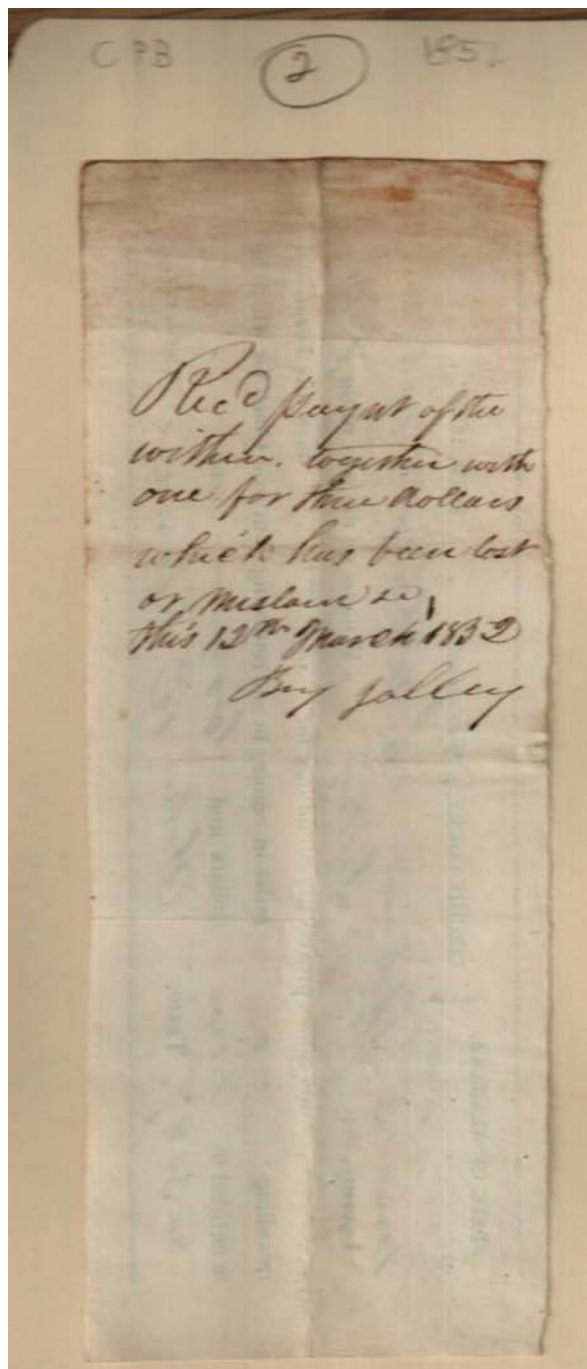 CPB 2 185
Recd paymt of the
within. together with
one for three dollars
which has been lost
or mislaid &c,
this 12th March 1832
Jolley